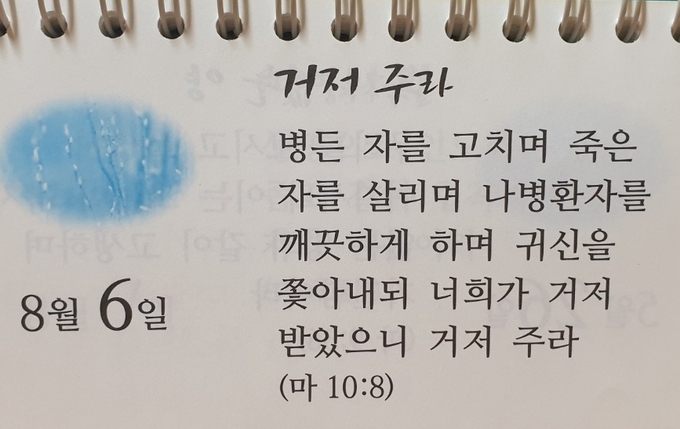 거저 주라
병든 자를 고치며 죽은
자를 살리며 나병환자를
깨끗하게 하며 귀신을
쫓아내되 너희가 거저
받았으니 거저 주라
(마 10:8)
8월 6일